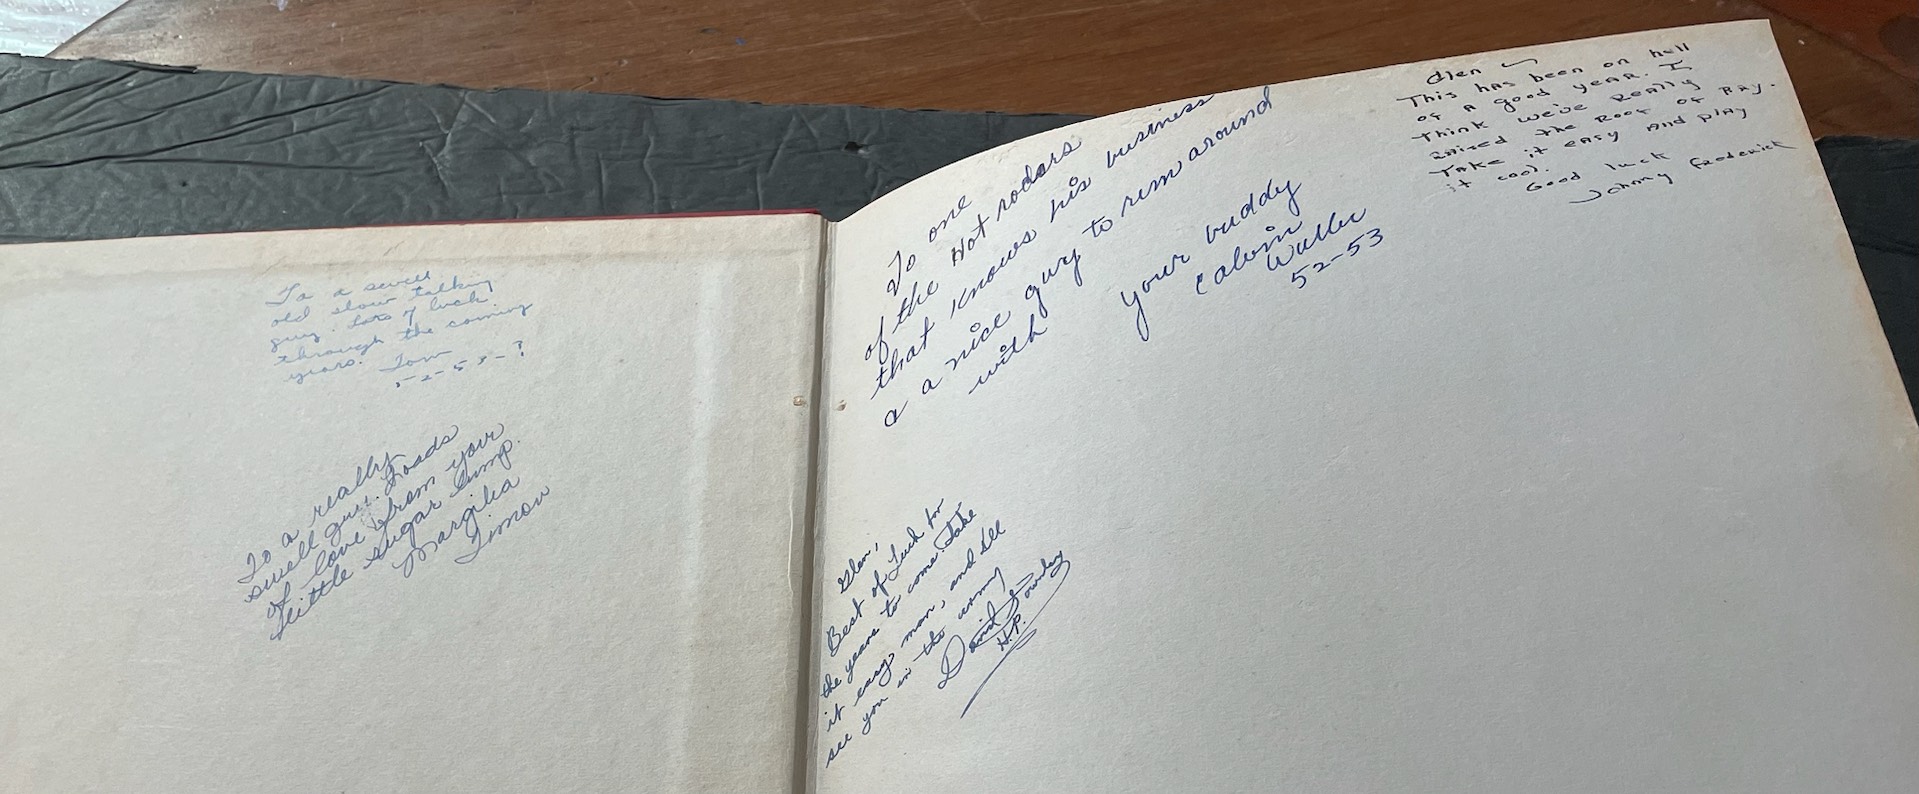 To a swell
old slow talking
guy. Lots of luck
through the coming
years. Tom
52-53-?
To a really
swell guy. Loads
of love from your
little sugar lump.
Margilea
Simon
To one
of the Hot rodars
that knows his business
a a nice guy to rem around
with
your buddy
Calvin
Waller
52-53
Glen
This has been on hell
of a good year. I
think we've really
raised the roof of RAy.
Take it easy and play
it cool.
Good luck
Johnny Frederick
Glen,
Best of Luck for
the years to come. Take
it easy, man, and Ill
see you in the army
David
H.P.